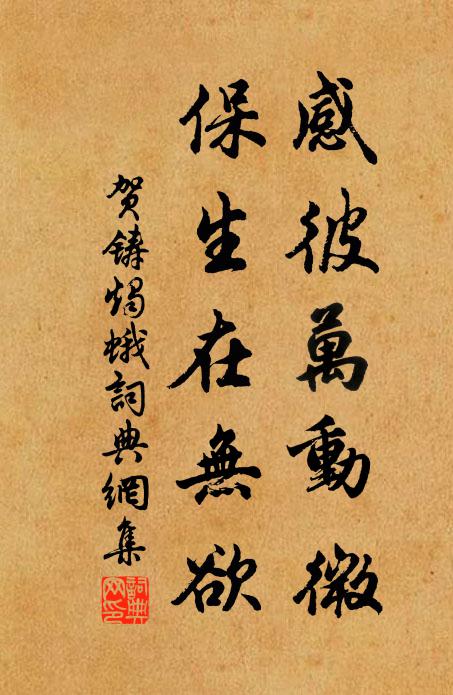 感彼萬動微
保生在無欲
贺鑄燭蛾詞典網集
詞典網印